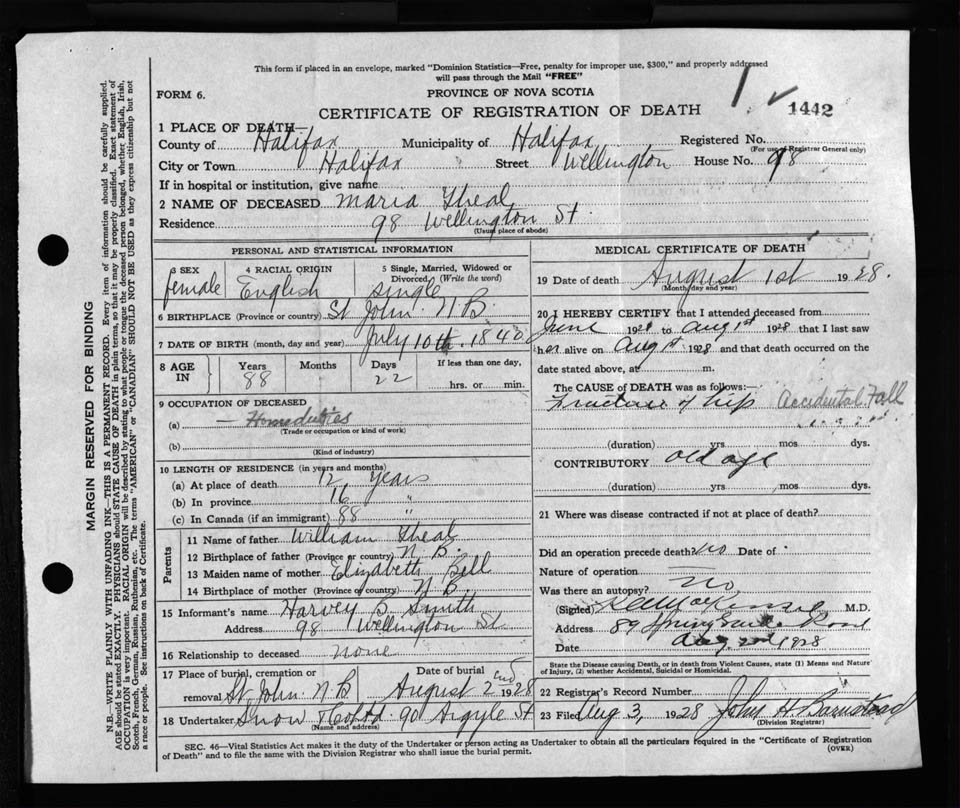 This form if placed in an envelope, marked "Dominion Statistics—Free, penalty for improper use, $300," and properly addressed
will pass through the Mail "FREE"
FORM 6.
PROVINCE OF NOVA SCOTIA
1442
CERTIFICATE OF REGISTRATION OF DEATH
1 PLACE OF DEATH—
County of Halifax Municipality of Halifax Registered No.
(For use of Registrar General only)
City or Town Halifax Street Wellington House No. 98
If in hospital or institution, give name
2 NAME OF DECEASED Maria Theal
Residence 98 Wellington St.
(Usual place of abode)
PERSONAL AND STATISTICAL INFORMATION
3 SEX 4 RACIAL ORIGIN 5 Single, Married, Widowed or Divorced (Write the word)
female English single
6 BIRTHPLACE (Province or country) St John N.B.
7 DATE OF BIRTH (month, day and year) July 10th. 1840
8 AGE IN Years Months Days If less than one day,
88 22 hrs. or min.
9 OCCUPATION OF DECEASED
(a) — Home duties
(Trade or occupation or kind of work)
(b)
(Kind of industry)
10 LENGTH OF RESIDENCE (in years and months)
(a) At place of death 12 years
(b) In province 16 "
(c) In Canada (if an immigrant) 88 "
Parents
11 Name of father William Theal
12 Birthplace of father (Province or country) N.B.
13 Maiden name of mother Elizabeth Bell
14 Birthplace of mother (Province or country) N B
15 Informant's name Harvey S. Smith
Address 98 Wellington St.
16 Relationship to deceased none
17 Place of burial, cremation or removal St John N.B Date of burial August 2nd 1928
18 Undertaker Snow & Co Ltd 90 Argyle St
(Name and address)
MEDICAL CERTIFICATE OF DEATH
19 Date of death August 1st 1928.
(Month, day and year)
20 I HEREBY CERTIFY that I attended deceased from
June 1928 to Aug 1st 1928 that I last saw
her alive on Aug 1st 1928 and that death occurred on the
date stated above, at m.
The CAUSE OF DEATH was as follows:—
Fracture of hip Accidental Fall
(duration) yrs mos dys.
CONTRIBUTORY old age
(duration) yrs. mos dys.
21 Where was disease contracted if not at place of death?
Did an operation precede death? No Date of
Nature of operation
Was there an autopsy? No
(Signed) M.D.
Address 89 Spring Garden Road
Date Aug 2nd 1928
State the Disease causing Death, or in death from Violent Causes, state (1) Means and Nature of Injury, (2) whether Accidental, Suicidal or Homicidal.
22 Registrar's Record Number
23 Filed Aug 3, 1928 John H. Barnstead
(Division Registrar)
SEC. 46—Vital Statistics Act makes it the duty of the Undertaker or person acting as Undertaker to obtain all the particulars required in the "Certificate of Registration
of Death" and to file the same with the Division Registrar who shall issue the burial permit.
(OVER)
MARGIN RESERVED FOR BINDING
N.B.—WRITE PLAINLY WITH UNFADING INK—THIS IS A PERMANENT RECORD. Every item of information should be carefully supplied.
AGE should be stated EXACTLY. PHYSICIANS should STATE CAUSE OF DEATH in plain terms, so that it may be properly classified. Exact statement of
OCCUPATION is very important. RACIAL ORIGIN will be described by stating to what people or tongue the deceased person belonged, whether English, Irish,
Scotch, French, German, Russian, Ruthenian, etc. The terms "AMERICAN" or "CANADIAN" SHOULD NOT BE USED as they express citizenship but not
a race or people. See instructions on back of Certificate.